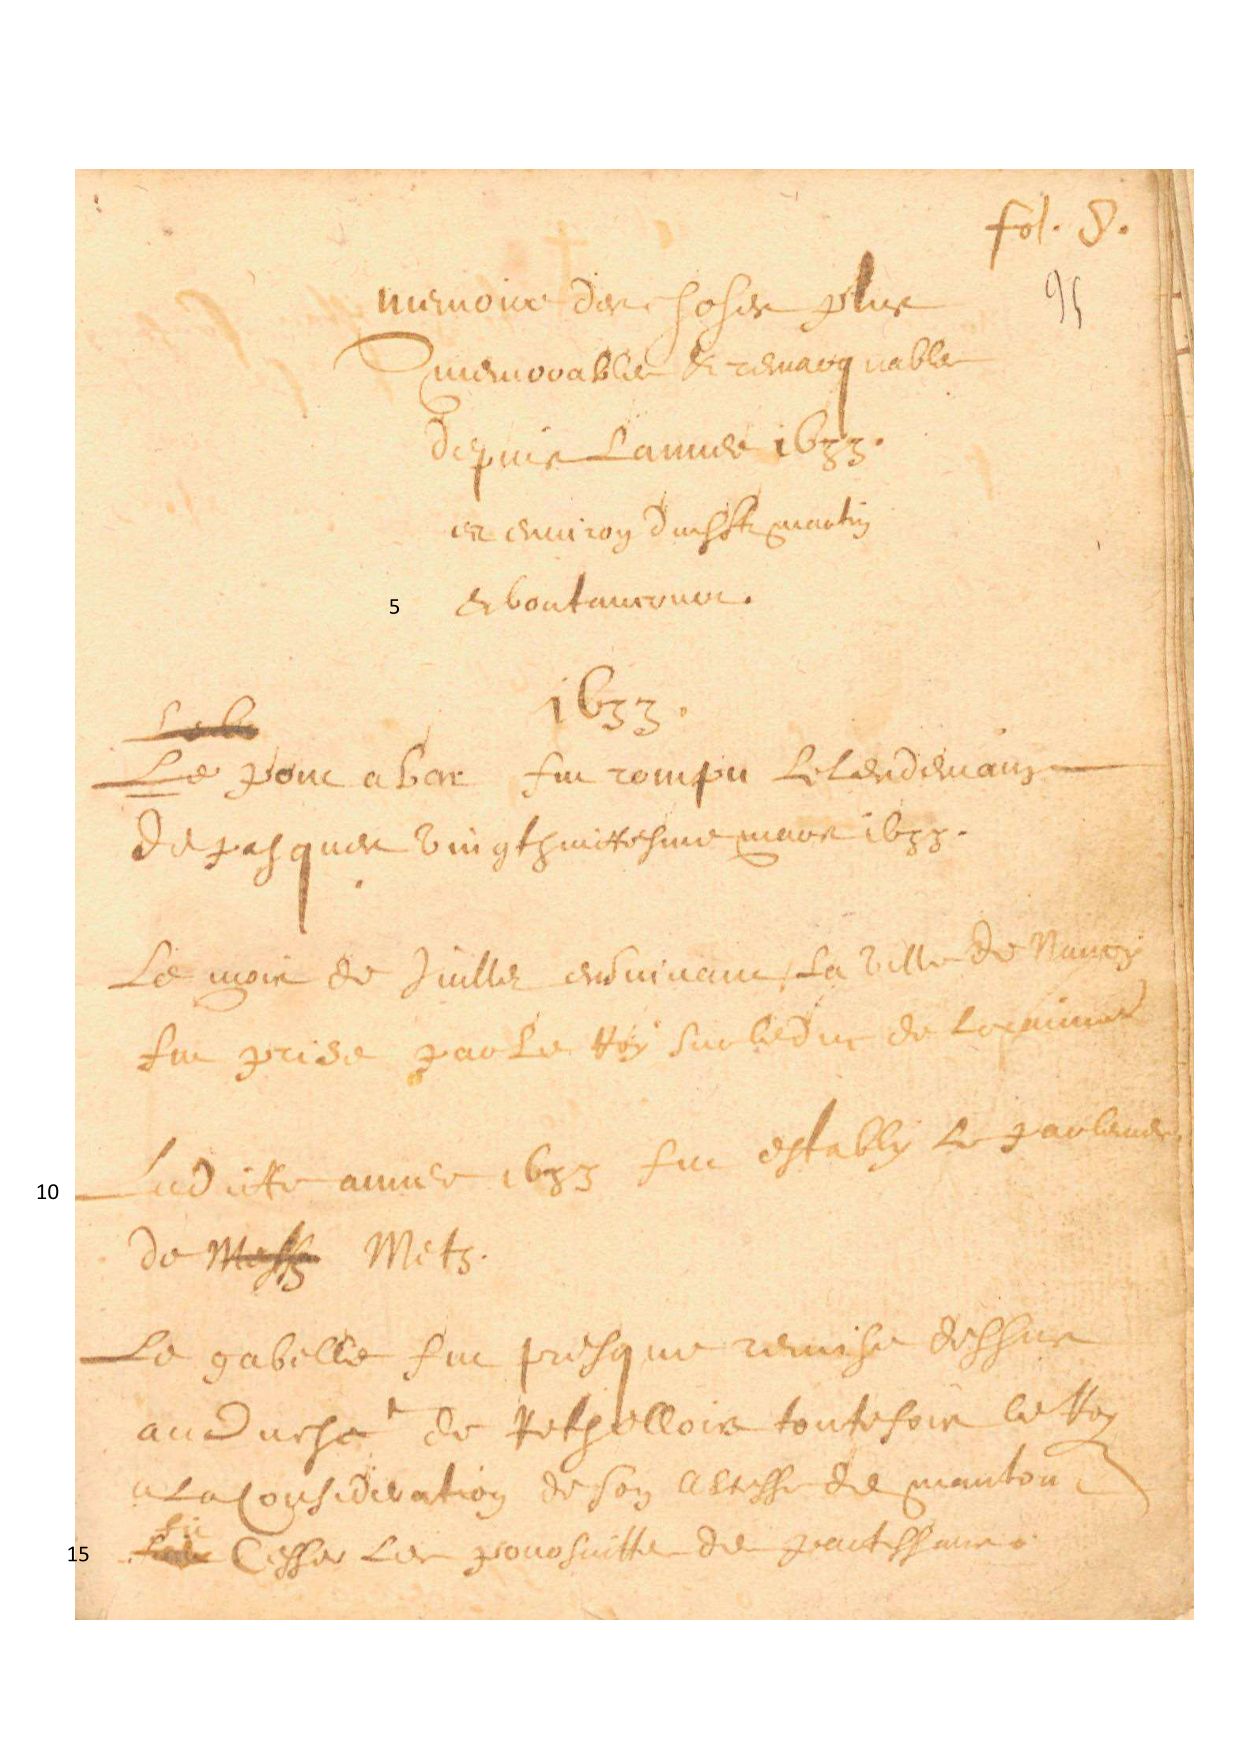 fol. 8.
95
memoire des choses plus
memorables & remarquables
depuis Lannee 1633.
es environ du
5
1633.
Le pont a bar fut rompu Le Lendemain
de pasques vingthuittesme mars 1633.
Le mois de Juillet ensuivant La ville de Nancy
fut prise par Le Roy sur le duc de Lorainne
10
Laditte annee 1633 fut estably Le parlement
de Metz Metz.
La gabelle fut presque remise dessus
au Duché de Rethellois toutefois le Roy
a La Consideration de son altesse de mantou
15
fit Cesser Les poursuitte des partissans.